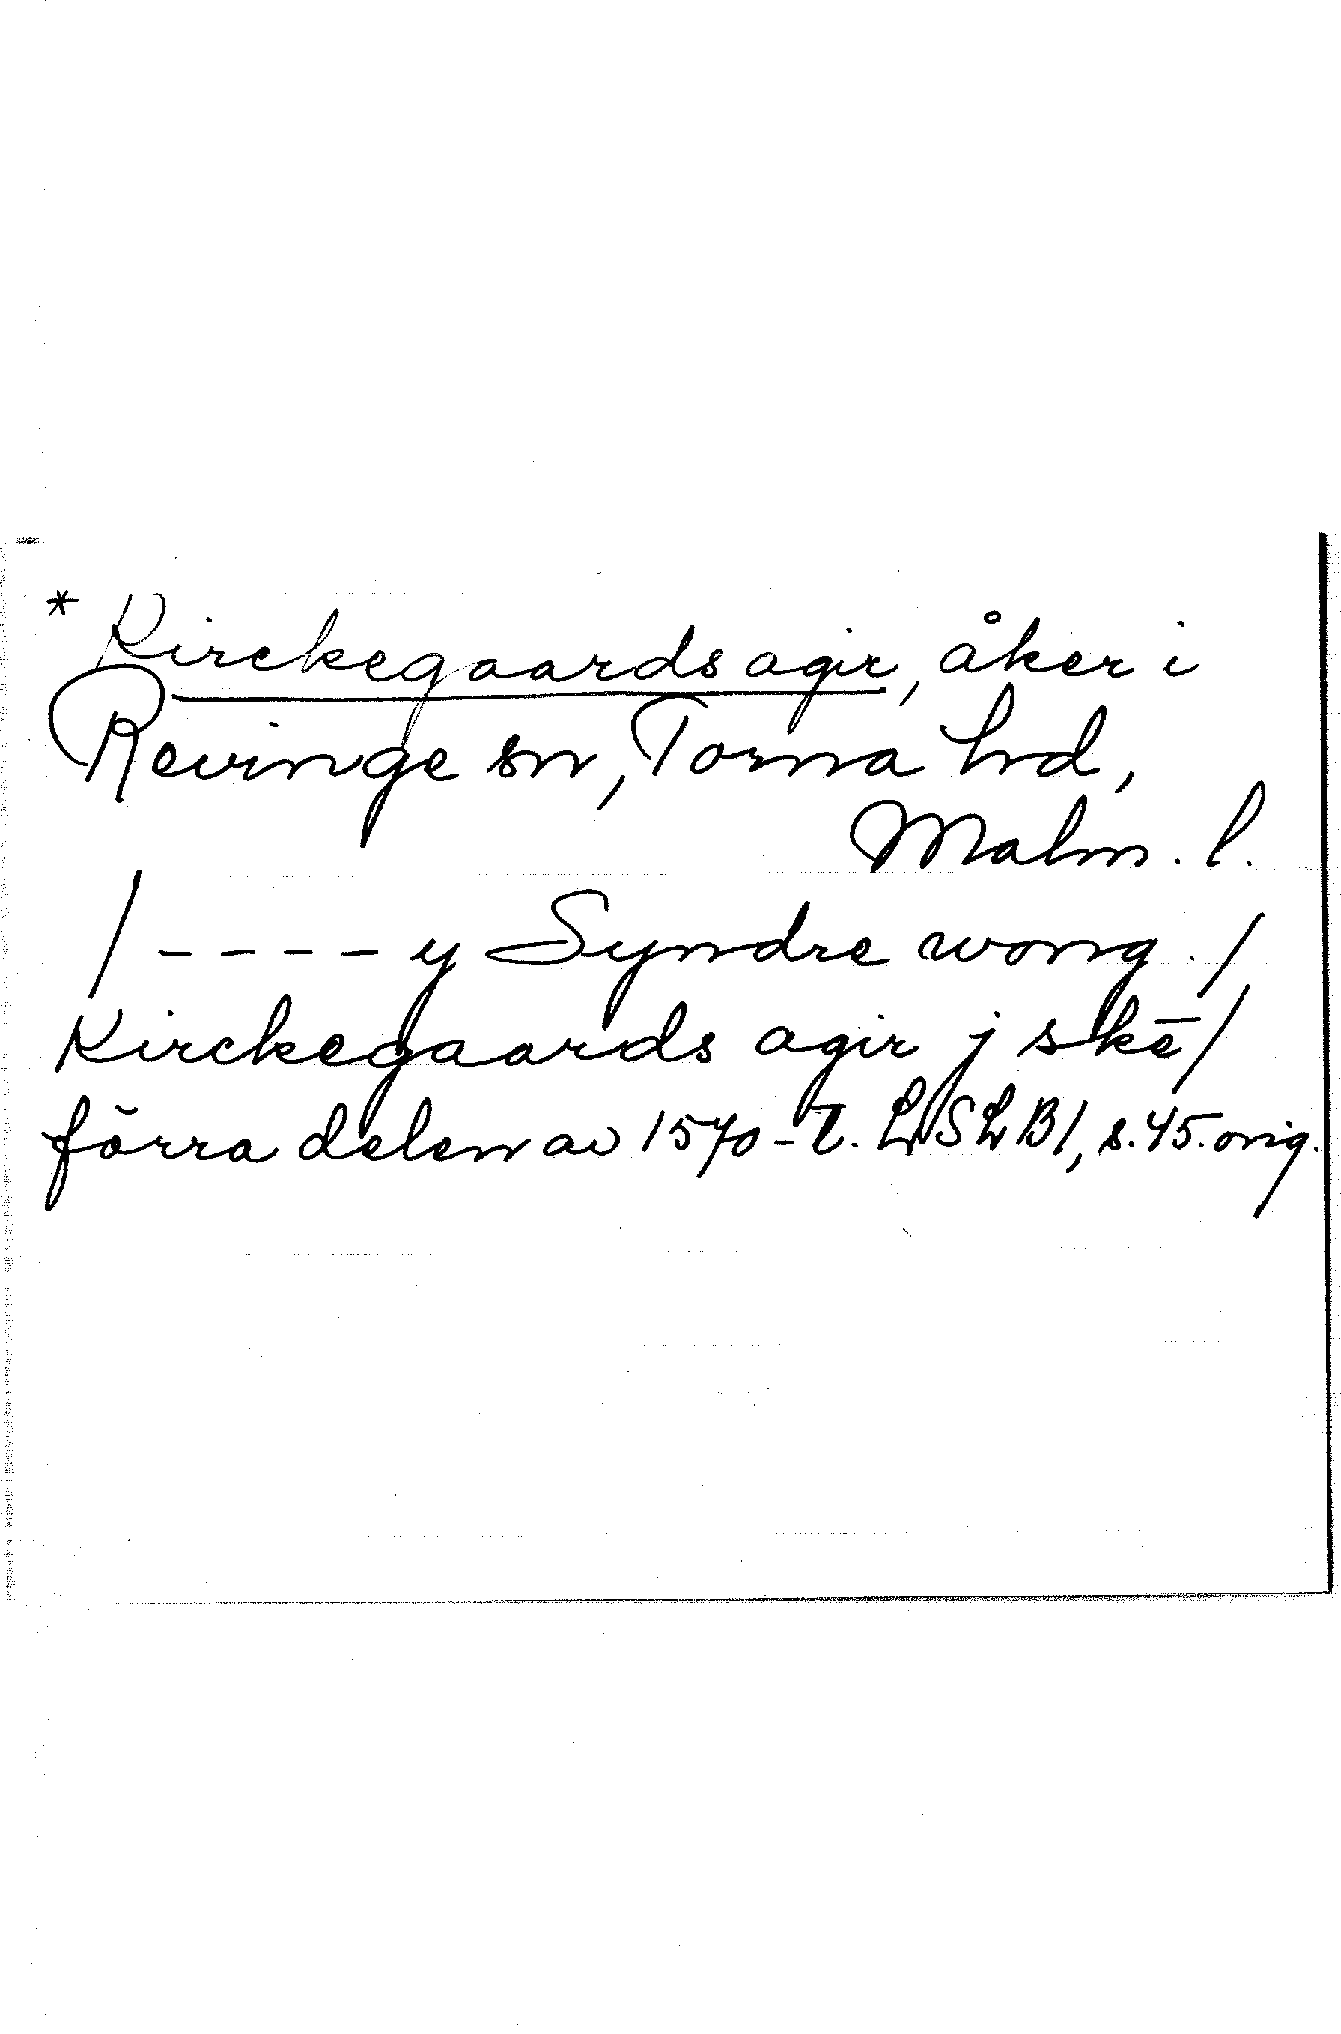 * Kirckegaards agir, åker i
Revinge sn, Torna hd,
Malm. l.
/ - - - - y Syndre wong. /
Kirckegaards agir j skē /
förra delen av 1570-t. LSLB1, s. 45. orig.